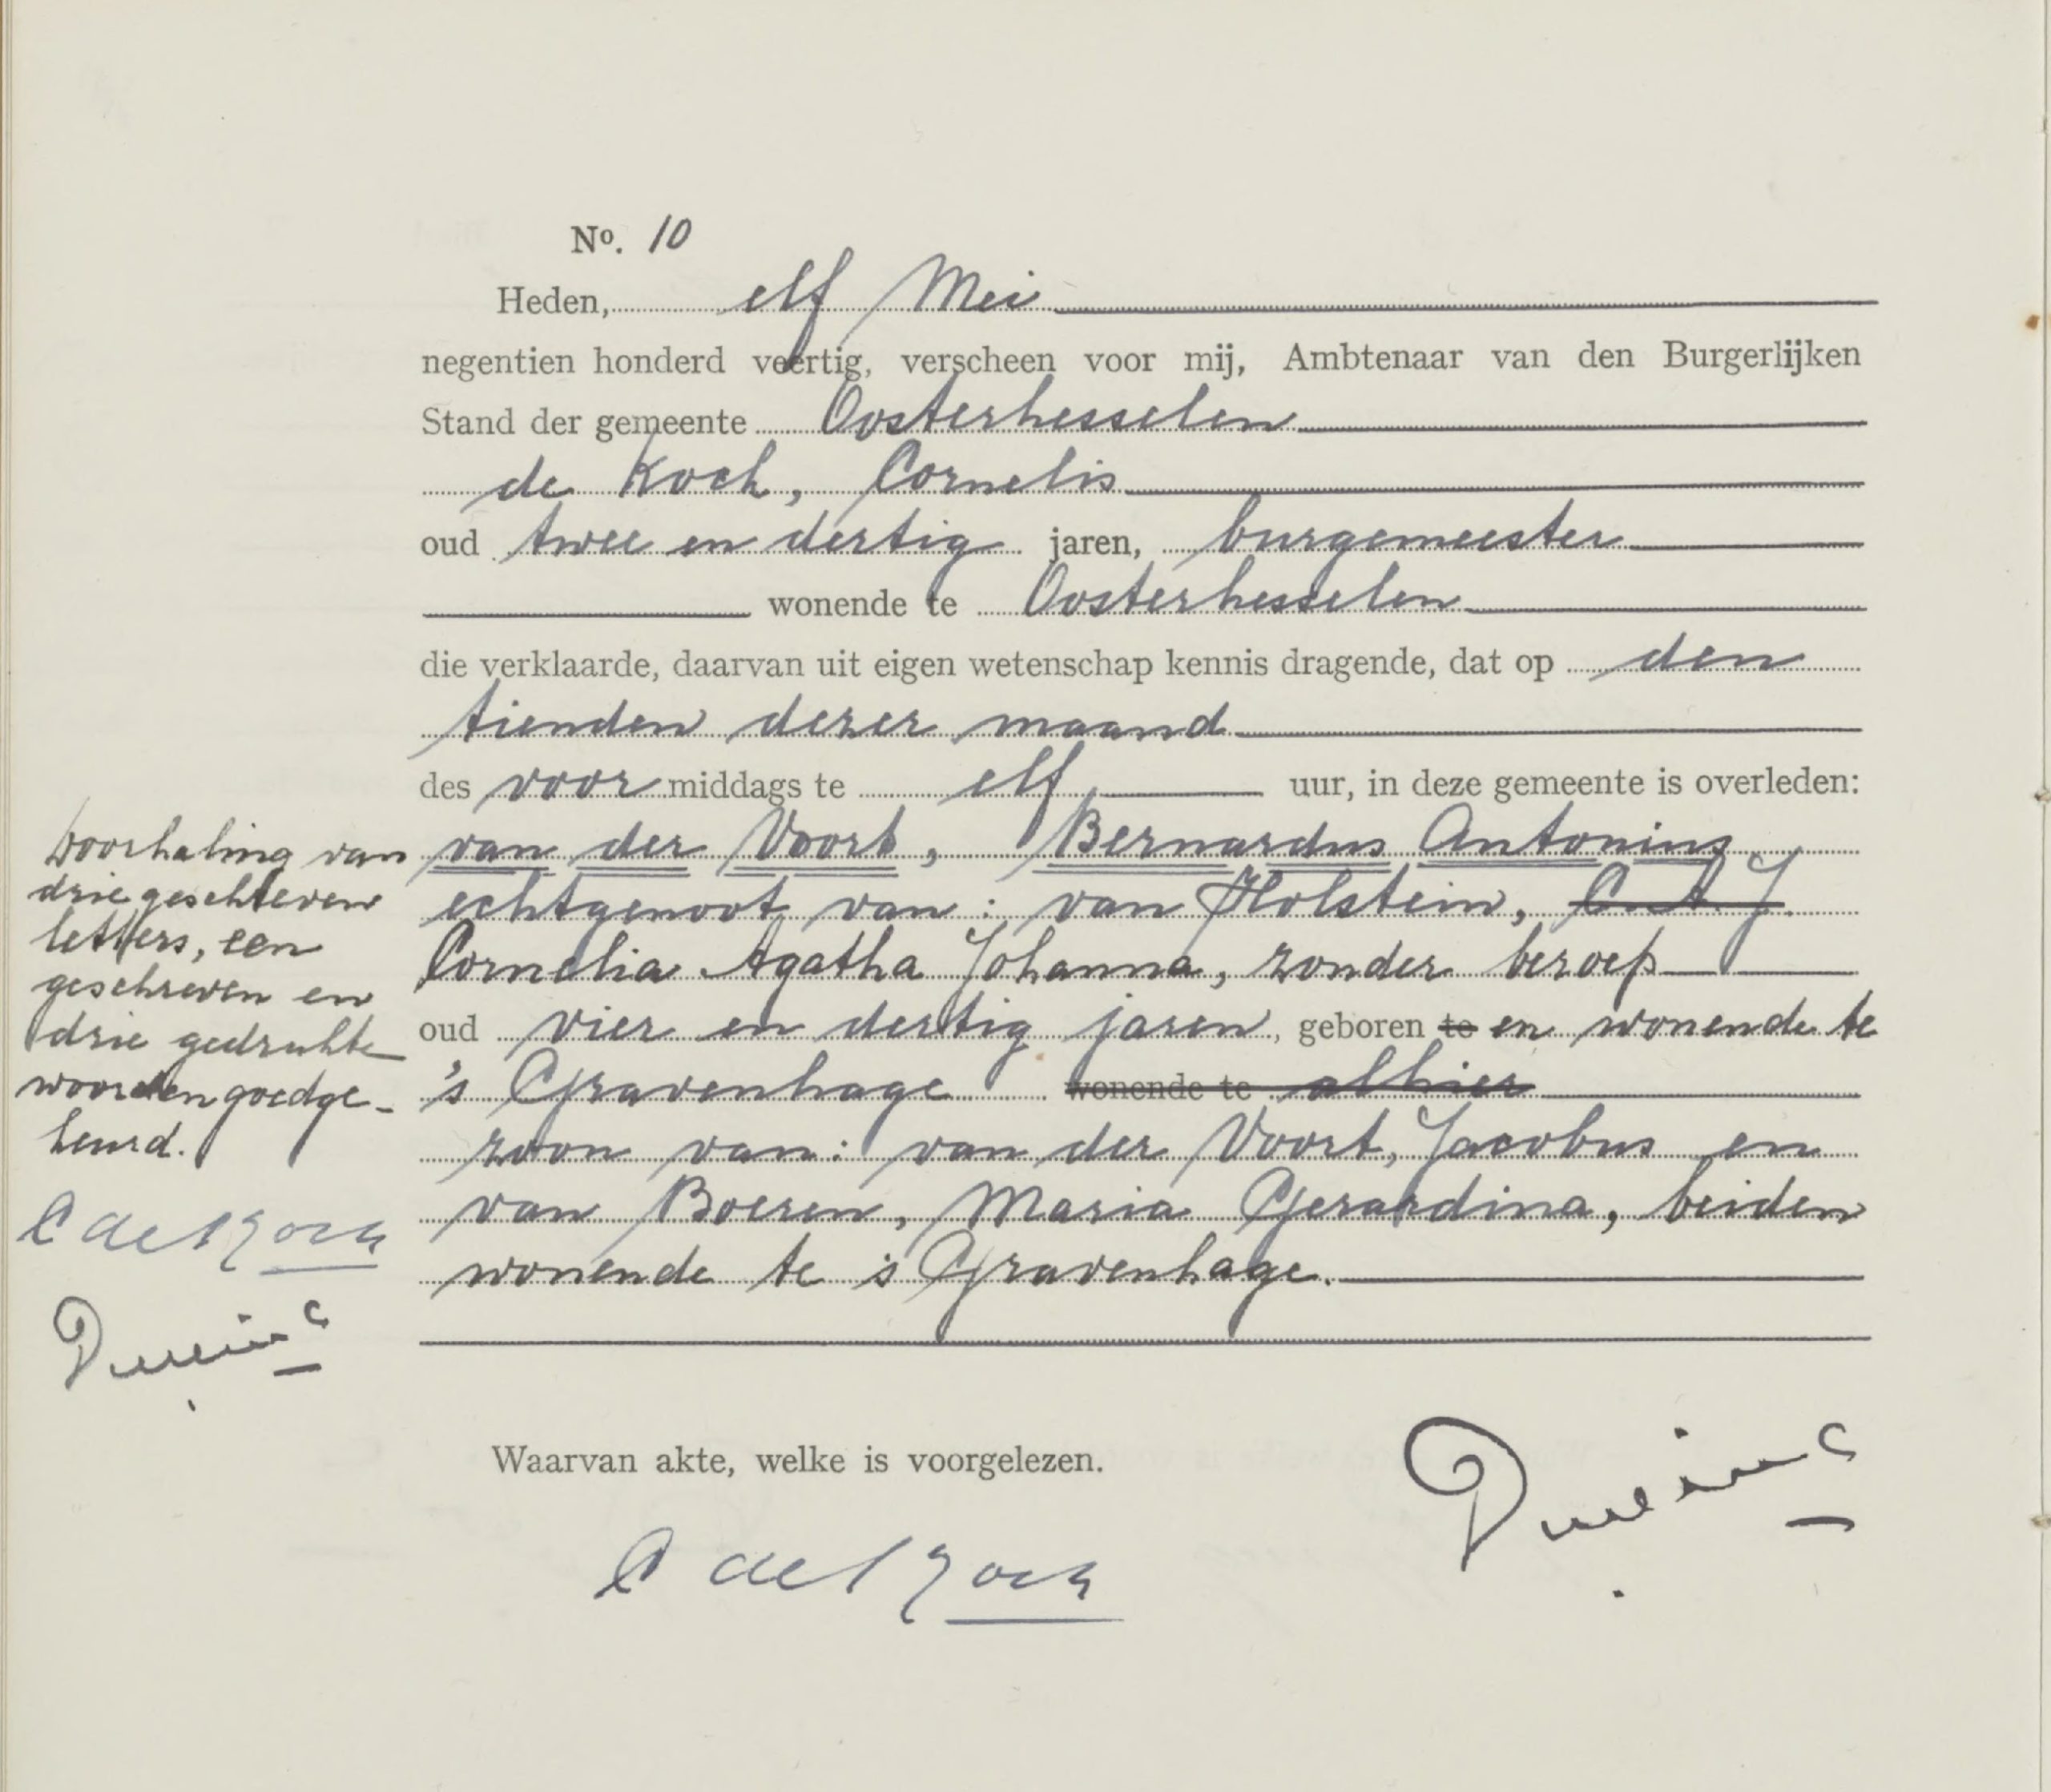 No. 10
Heden, elf Mei
negentien honderd veertig, verscheen voor mij, Ambtenaar van den Burgerlijken
Stand der gemeente Oosterhesselen
de Koch, Cornelis
oud twee en dertig jaren, burgemeester
wonende te Oosterhesselen
die verklaarde, daarvan uit eigen wetenschap kennis dragende, dat op den
tienden dezer maand
des voor middags te elf uur, in deze gemeente is overleden:
van der Voort, Bernardus Antonius
echtgenoot van: van Holstein, C. A. J.
Cornelia Agatha Johanna, zonder beroep
oud vier en dertig jaren, geboren te en wonende te
's Gravenhage wonende te alhier
zoon van: van der Voort, Jacobus en
van Boeren, Maria Gerardina, beiden
wonende te 's Gravenhage.
Doorhaling van
drie geschreven
letters, een
geschreven en
drie gedrukte
woorden goedge-
keurd.
C de Koch
Waarvan akte, welke is voorgelezen.
C de Koch